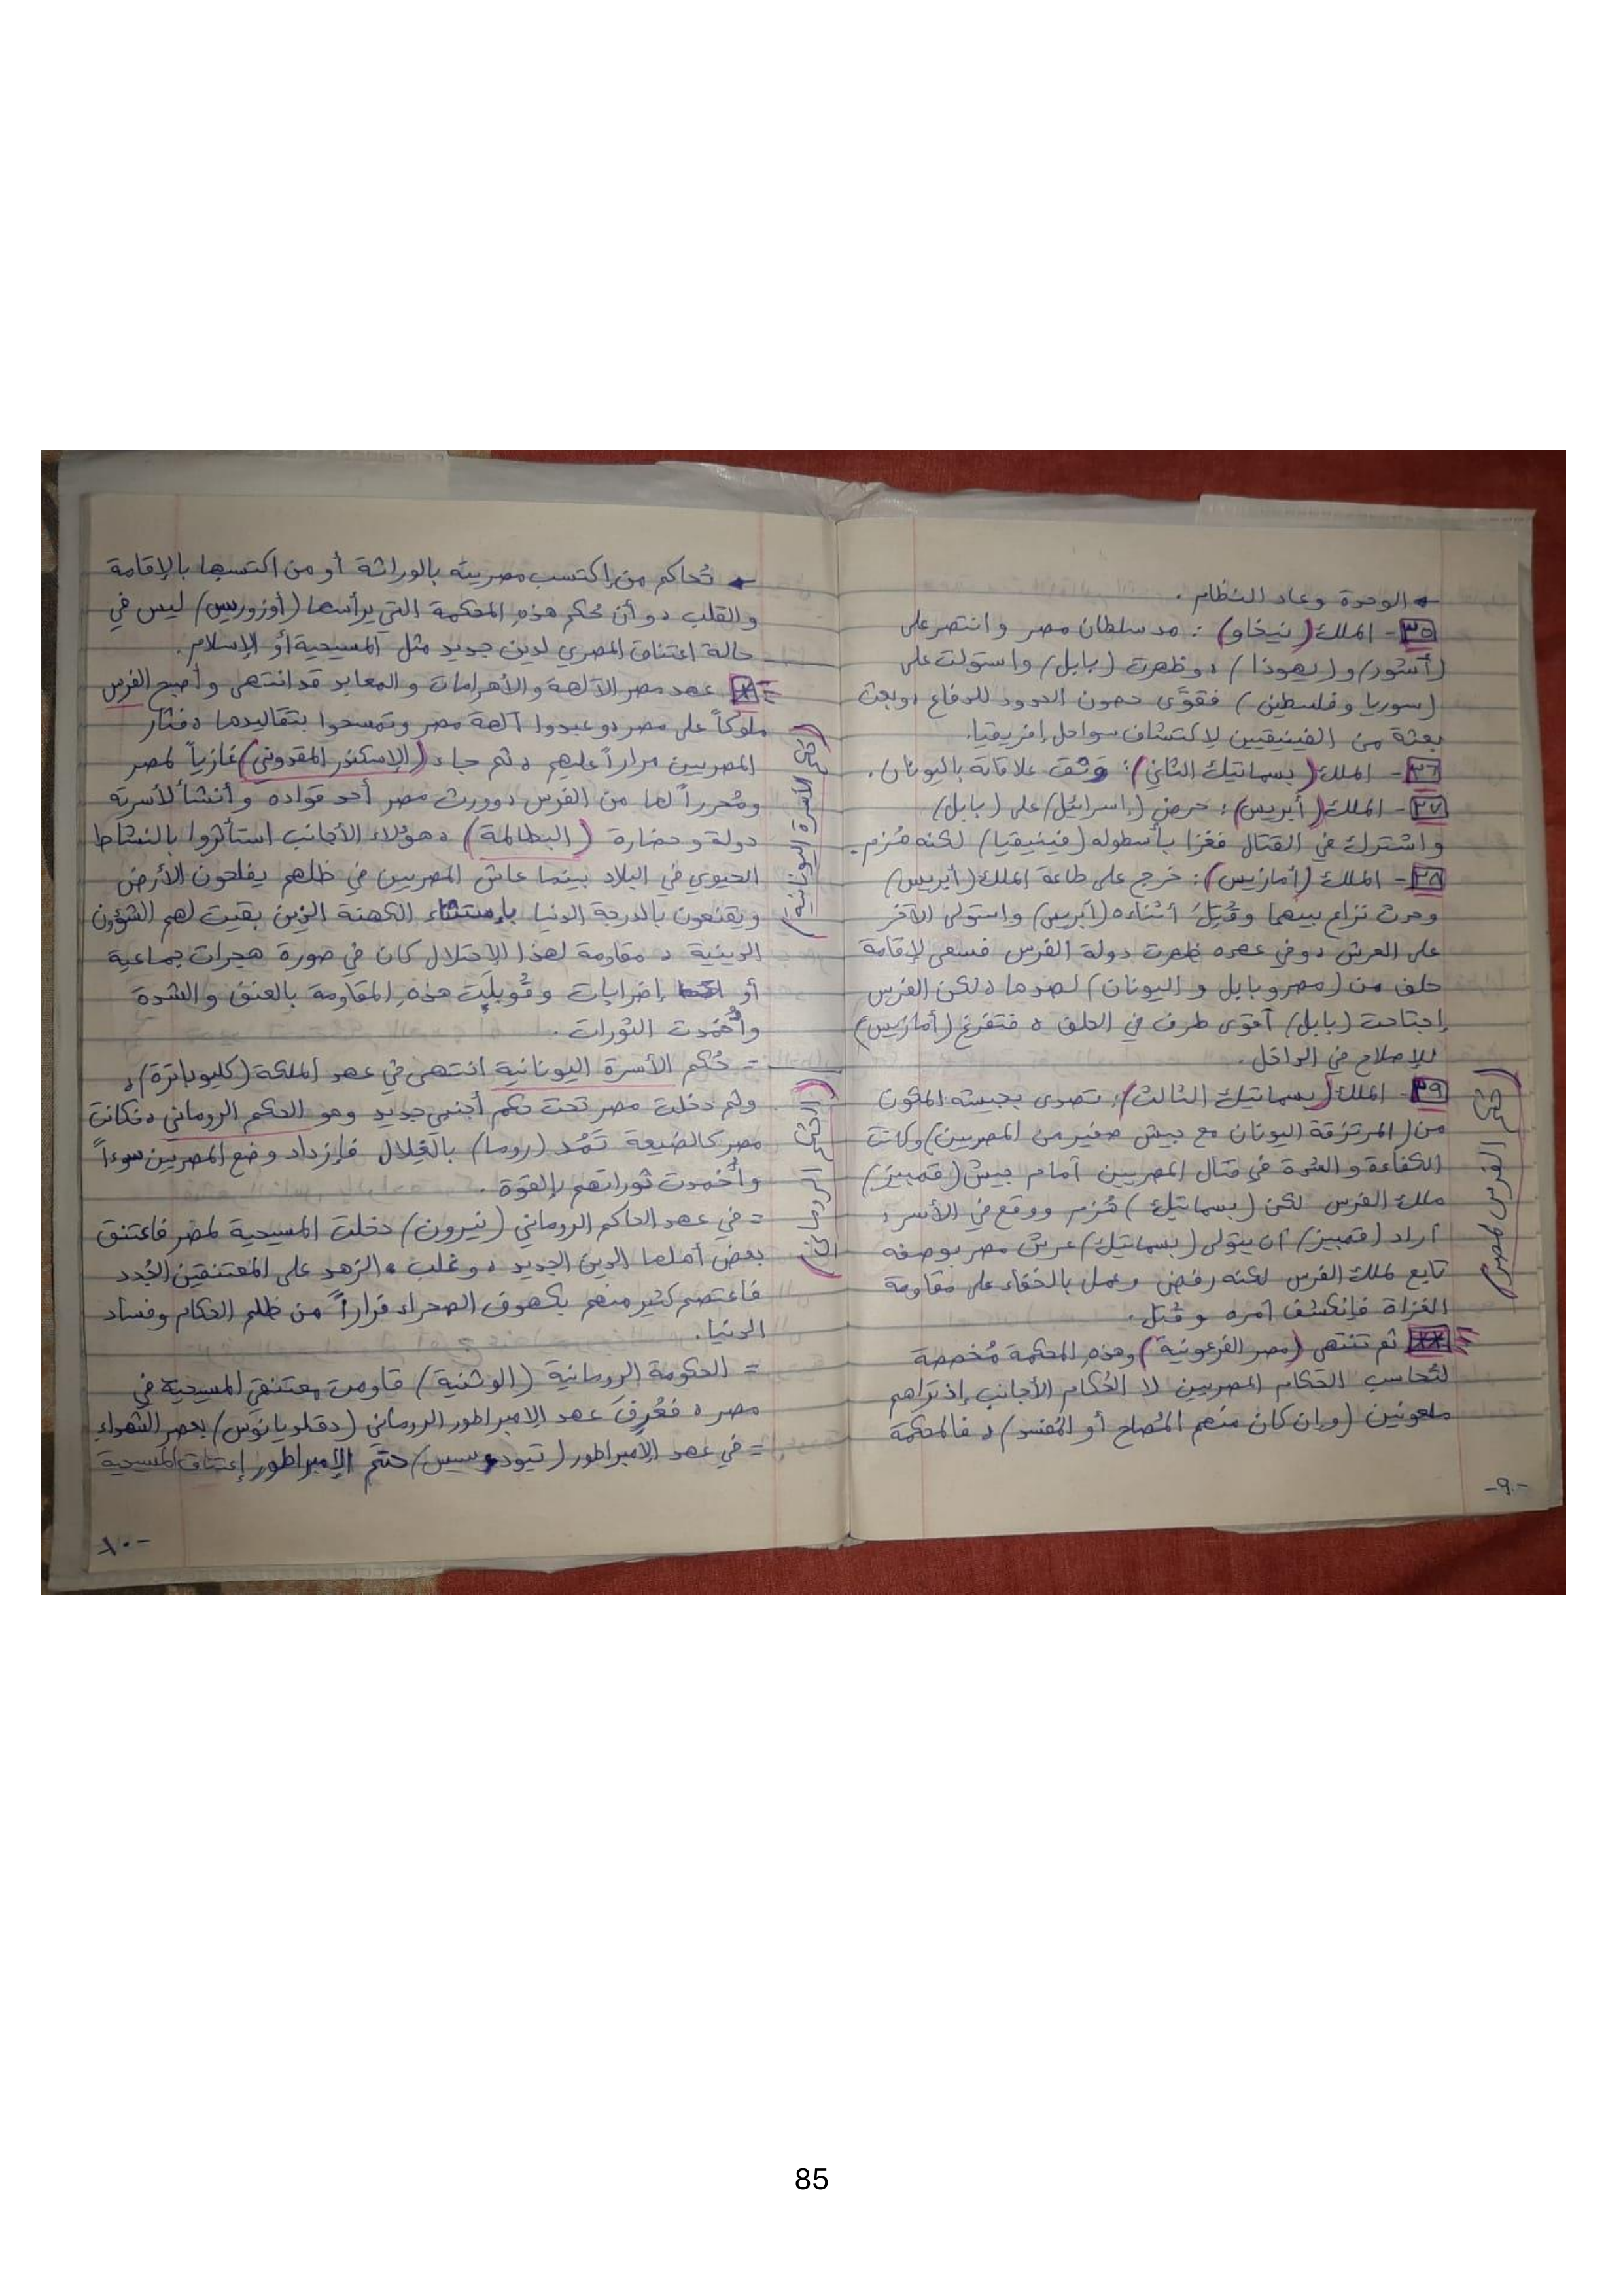 ← الوحدة وعاد النظام .
٣٥- الملك (نيخاو) : مد سلطان مصر وانتصر على
(أشور) و (يهوذا) ، وظهرت (بابل) واستولت على
(سوريا وفلسطين) فقوَّى حصون الحدود للدفاع ، وبعث
بعثة من الفينيقيين لإكتشاف سواحل إفريقيا.
٣٦- الملك (بسماتيك الثاني) : وثق علاقاته باليونان.
٣٧- الملك (أبريس) : حرض (إسرائيل) على (بابل)
واشترك في القتال فغزا بأسطوله (فينيقيا) لكنه هُزم.
٣٨- الملك (أمازيس) : خرج على طاعة الملك (أبريس)
وحدث نزاع بينهما وقُتِلَ أثناءه (أبريس) واستولى الآخر
على العرش ، وفي عهده ظهرت دولة الفرس فسعى لإقامة
حلف من (مصر وبابل و اليونان) لصدها ، لكن الفرس
إجتاحت (بابل) أقوى طرف في الحلف ، فتفرغ (أمازيس)
للإصلاح في الداخل.
٣٩- الملك (بسماتيك الثالث) : تصدى بجيشه المكون
من (المرتزقة اليونان مع جيش صغير من المصريين) وكانت
الكفاءة و العُدة في قتال المصريين أمام جيش (قمبيز)
ملك الفرس لكن (بسماتيك) هُزم ووقع في الأسر ،
أراد (قمبيز) أن يتولى (بسماتيك) عرش مصر بوصفه
تابع لملك الفرس لكنه رفض وعمل بالخفاء على مقاومة
الغزاة فإنكشف أمره وقُتل.
** ثم تنتهى (مصر الفرعونية) وهذه المحكمة مُخصصة
لتُحاسب الحكام المصريين لا الحُكام الأجانب إذ تراهم
ملعونين (وإن كان منهم المُصلح أو المُفسد) ، فالمحكمة
(حكم الفرس لمصر)
-٩-
← تُحاكم من إكتسب مصريته بالوراثة أو من اكتسبها بالإقامة
والقلب ، وأن حُكم هذه المحكمة التي يرأسها (أوزوريس) ليس في
حالة اعتناق المصري لدين جديد مثل المسيحية أو الإسلام.
* عهد مصر الآلهة و الأهرامات و المعابد قد انتهى وأصبح الفرس
ملوكاً على مصر ، وعبدوا آلهة مصر وتمسحوا بتقاليدها ، فثار
المصريين مراراً عليهم ، ثم جاء (الإسكندر المقدوني) غازياً لمصر
ومُحرراً لها من الفرس ، وورث مصر أحد قواده وأنشأ لأسرته
دولة و حضارة (البطالمة) ، هؤلاء الأجانب استأثروا بالنشاط
الحيوي في البلاد بينما عاش المصريين في ظلهم يفلحون الأرض
ويقنعون بالدرجة الدنيا بإستثناء الكهنة الذين بقيت لهم الشؤون
الدينية ، مقاومة لهذا الإحتلال كان في صورة هجرات جماعية
أو إضرابات وقُوبلَت هذهِ المقاومة بالعنف والشدة
وأُخمدت الثورات .
= حُكم الأسرة اليونانية انتهى في عهد الملكة (كليوباترة) ،
وثم دخلت مصر تحت حكم أجنبي جديد وهو الحكم الروماني ، فكانت
مصر كالضيعة تَمُد (روما) بالغِلال فإزداد وضع المصريين سوءاً
وأُخمدت ثوراتهم بالقوة .
= في عهد الحاكم الروماني (نيرون) دخلت المسيحية لمصر فاعتنق
بعض أهلها الدين الجديد ، وغلب الزهد على المعتنقين الجُدد
فاعتصم كثير منهم بكهوف الصحراء فراراً من ظلم الحكام وفساد
الدنيا.
= الحكومة الرومانية (الوثنية) قاومت معتنقي المسيحية في
مصر ، فعُرِفَ عهد الإمبراطور الروماني (دقلديانوس) بعصر الشهداء
= في عهد الإمبراطور (تيودوسيس) حتّم الإمبراطور إعتناق المسيحية
(حكم الأسرة اليونانية)
(الحكم الروماني)
-١٠-
85